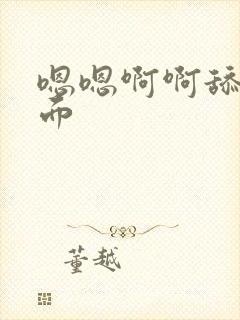 嗯嗯啊啊舔
而
董越